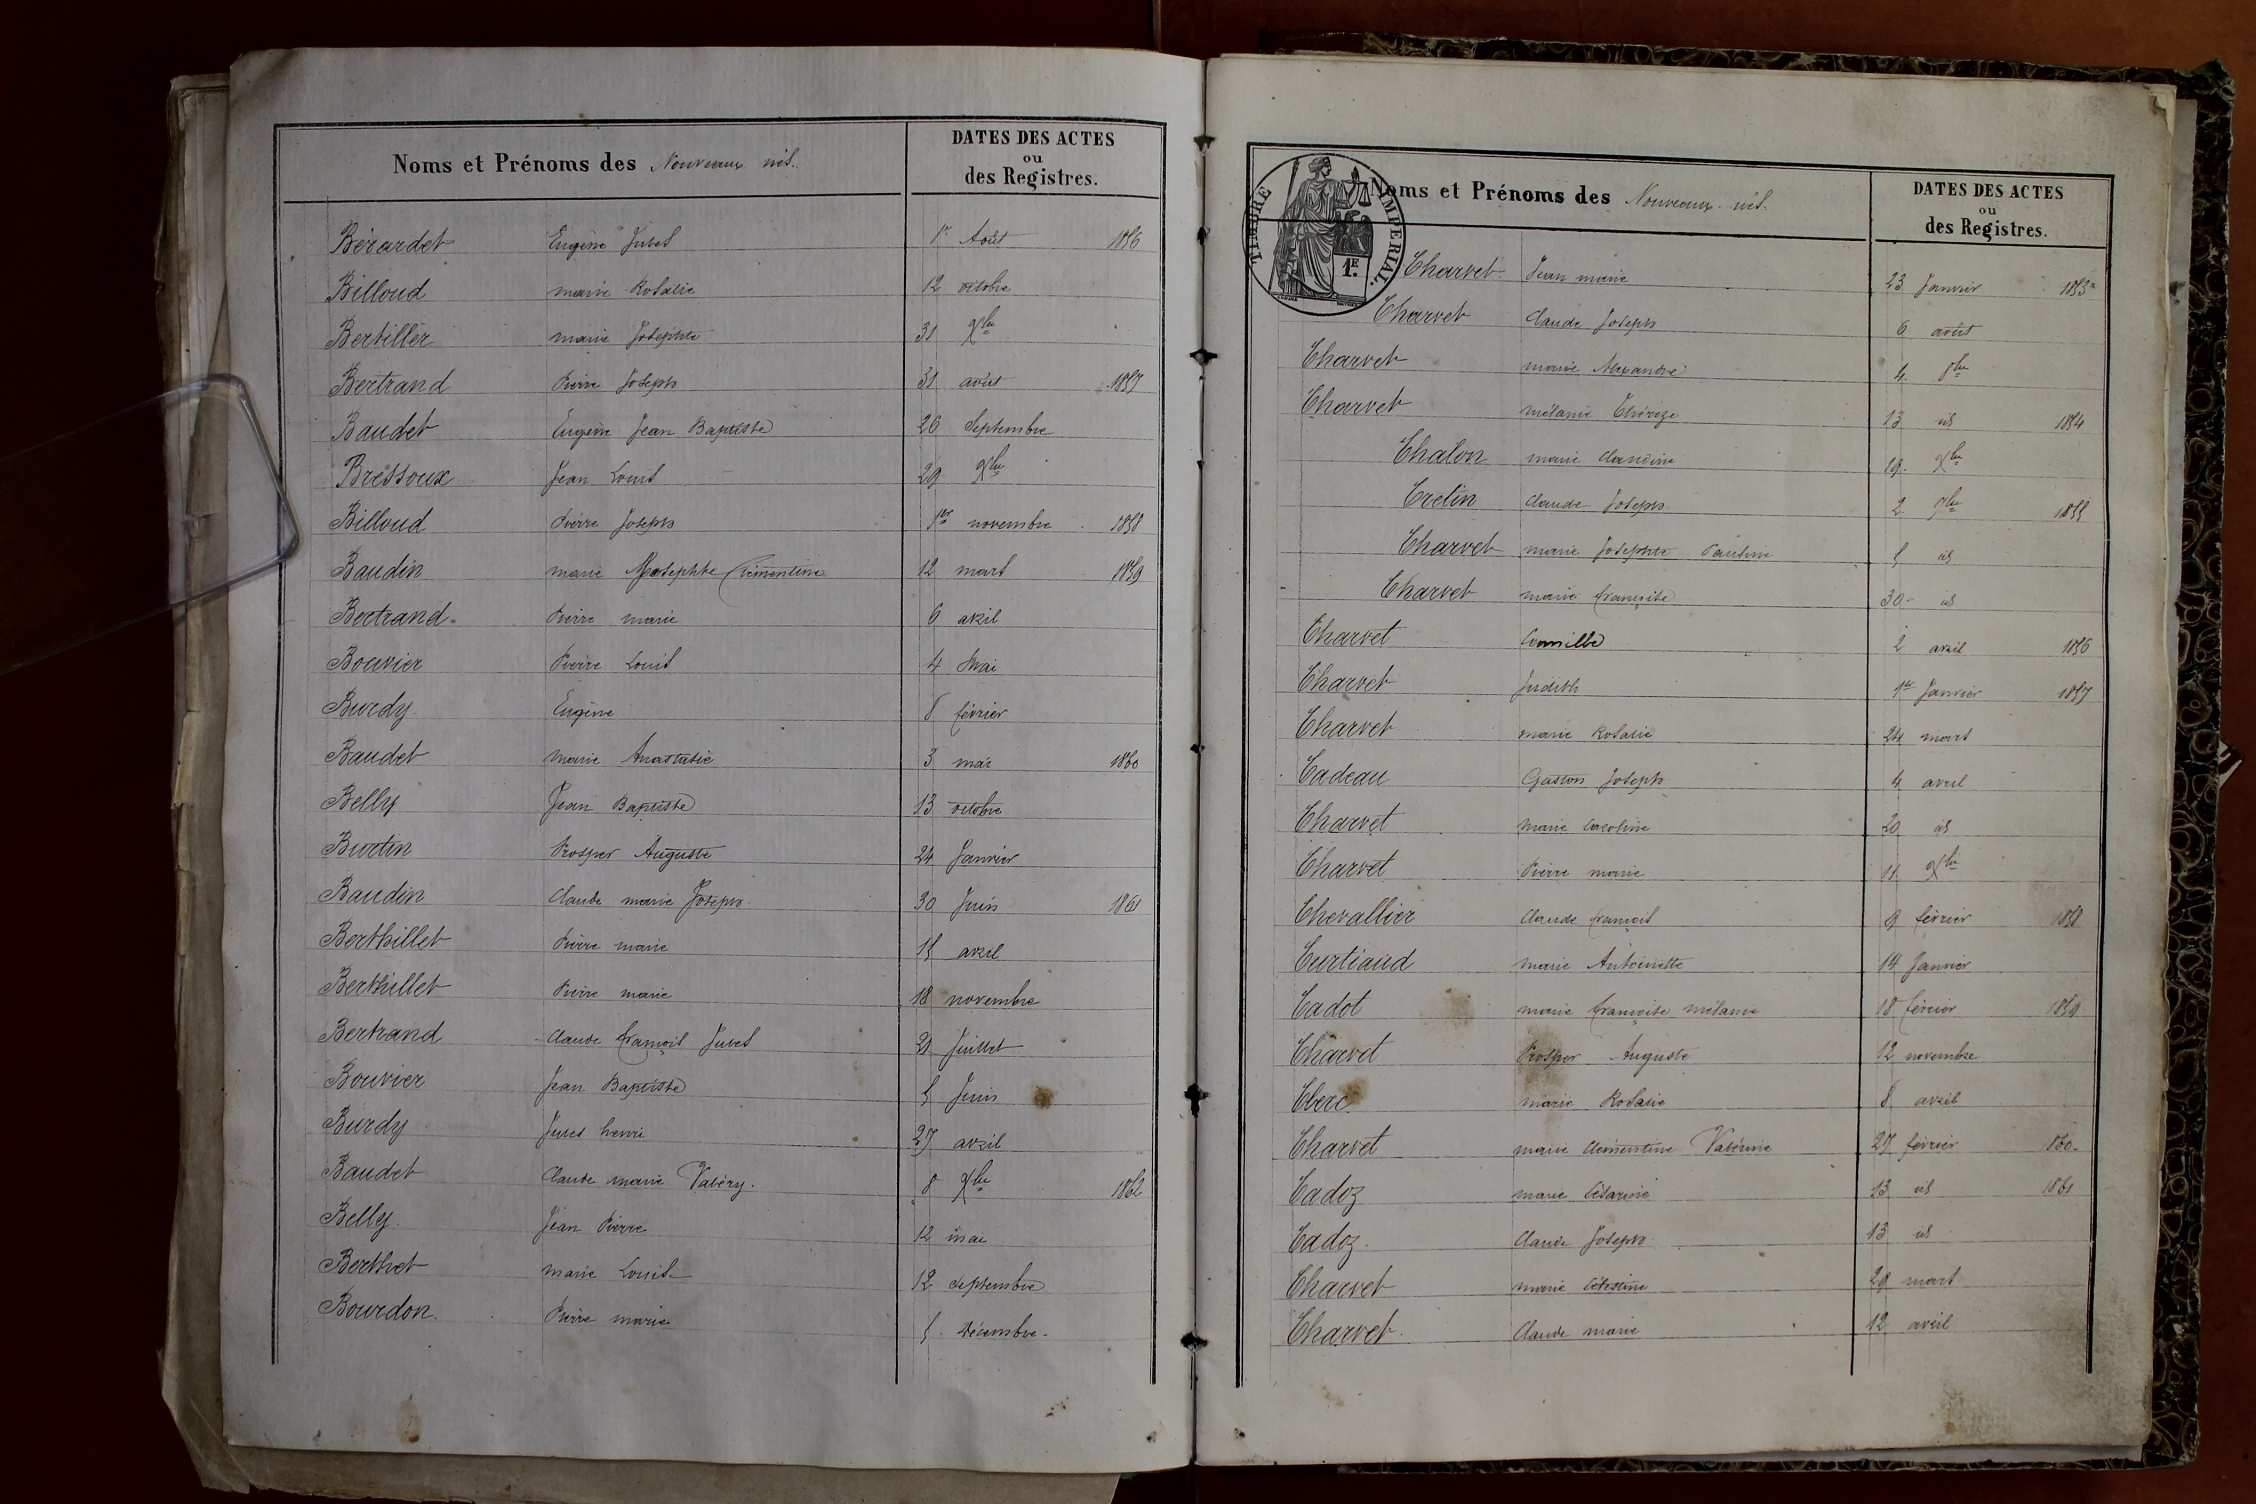 Noms et Prénoms des Nouveaux nés.
DATES DES ACTES
ou
des Registres.
Bérardet Eugène Jules 1er Août 1856
Billoud marie Rosalie 12 octobre
Bertiller marie Josephte 31 Xbre
Bertrand Pierre Joseph 31 août 1857
Baudet Eugène Jean Baptiste 26 Septembre
Bressoux Jean Louis 29 Xbre
Billoud Pierre Joseph 1er novembre 1858
Baudin marie Josephte Clémentine 12 mars 1859
Bertrand Pierre marie 6 avril
Bouvier Pierre Louis 4 Mai
Burdy Eugène 8 février
Baudet Marie Anastasie 3 mai 1860
Belly Jean Baptiste 13 octobre
Burtin Prosper Auguste 24 Janvier
Baudin Claude marie Joseph 30 Juin 1861
Berthillet Pierre marie 15 avril
Berthillet Pierre marie 18 novembre
Bertrand Claude françois Jules 21 Juillet
Bouvier Jean Baptiste 5 Juin
Burdy Jules henri 27 avril
Baudet Claude marie Valéry. 8 Xbre 1862
Belly. Jean Pierre 12 mai
Berthet marie Louise 12 Septembre
Bourdon. Pierre marie 5 Décembre
TIMBRE IMPERIAL.
1F.
Noms et Prénoms des Nouveaux nés.
DATES DES ACTES
ou
des Registres.
Charvet Jean marie 23 Janvier 1853
Charvet Claude Joseph 6 août
Charvet marie Alexandre 4 8bre
Charvet mélanie Thérèze 13 id 1854
Chalon marie Claudine 19 Xbre
Cretin Claude Joseph 2 9bre 1855
Charvet marie Josephte Pauline 5 id
Charvet marie françoise 30 id
Charvet Camille 2 avril 1856
Charvet Judith 1er Janvier 1857
Charvet marie Rosalie 24 mars
Cadeau Gaston Joseph 4 avril
Charvet Marie Caroline 20 id
Charvet Pierre marie 11 Xbre
Chevallier Claude françois 9 février 1858
Curtiaud marie Antoinette 14 Janvier
Cadot marie françoise mélanie 18 février 1859
Charvet Prosper Auguste 12 novembre
Clerc marie Rosalie 8 avril
Charvet marie Clémentine Valérine 27 février 1860
Cadoz marie Césarine 23 id 1861
Cadoz. Claude Joseph 13 id
Charvet marie Célestine 29 mars
Charvet. Claude marie 12 avril